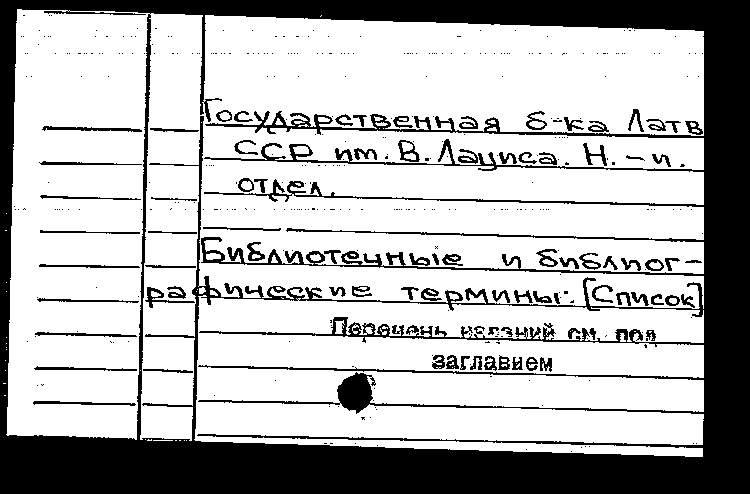 Государственная б-ка Латв
ССР им. В. Лациса. Н.-и.
отдел.
Библиотечные и библиог-
рафические термины: [Список]
Перечень изданий см. под
заглавием